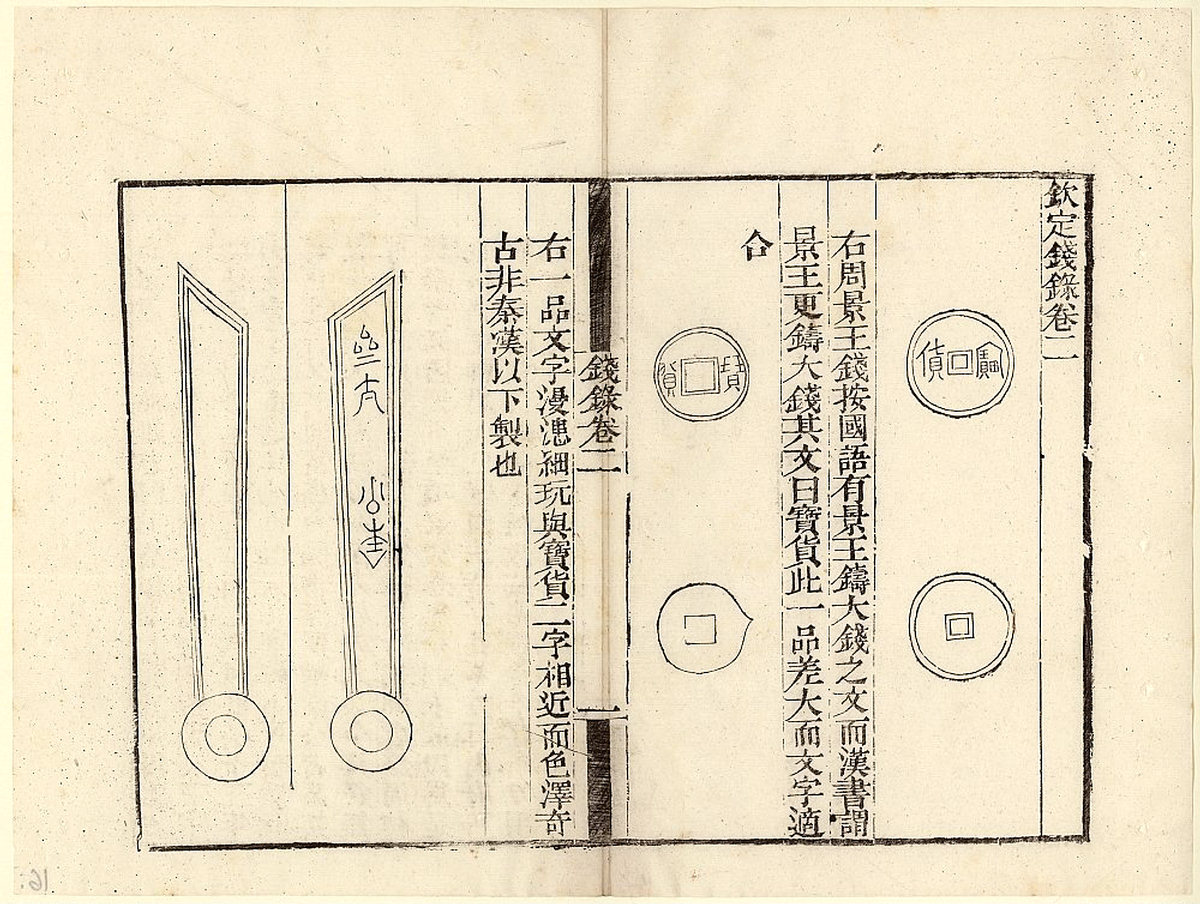 欽定錢錄卷二
寶貨
右周景王錢按國語有景王鑄大錢之文而漢書謂
景王更鑄大錢其文曰寶貨此一品差大而文字適
合
錢錄卷二
一
右一品文字漫漶細玩與寶貨二字相近而色澤奇
古非秦漢以下製也